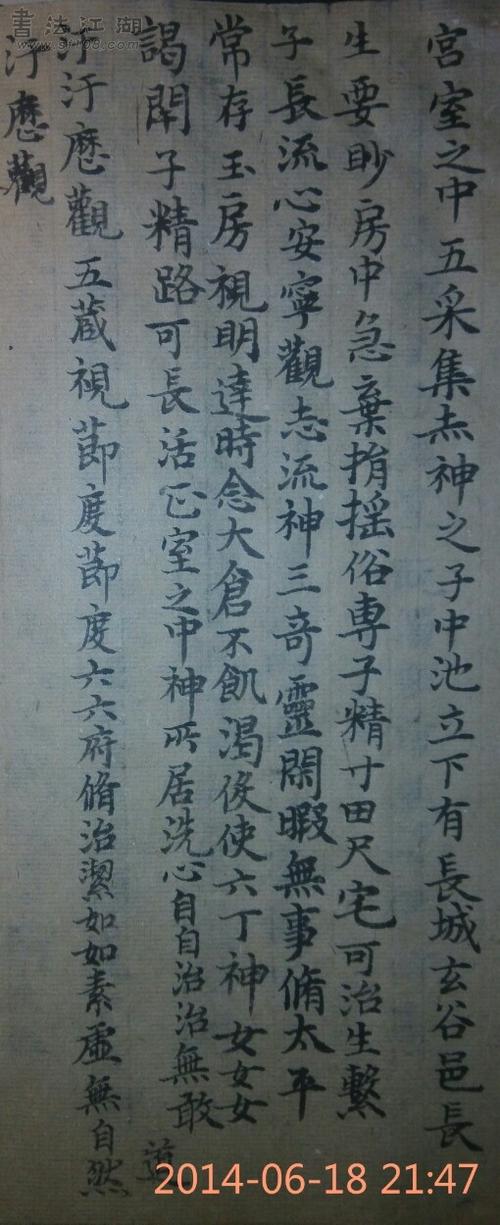 宮室之中五采集赤神之子中池立下有長城玄谷邑長
生要眇房中急棄捐揺俗専子精寸田尺宅可治生繫
子長流心安寧觀志流神三奇靈閑暇無事脩太平
常存玉房視明達時念大倉不飢渴役使六丁神女女女
謁閇子精路可長活正室之中神所居洗心自自治治無敢
汙汙歷觀五藏視節度節度六六府脩治潔如如素虛無自然
道
汙歷觀
書法江湖
2014-06-18 21:47